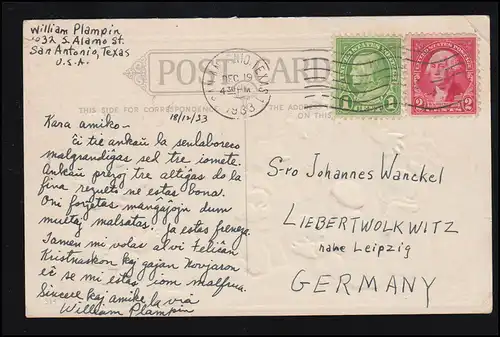 William Plampin
1032 S. Alamo St.
San Antonio, Texas
U.S.A.
POST CARD
SAN ANTONIO, TEXAS
DEC 19
430 PM
1933
THIS SIDE FOR CORRESPONDENCE
THE ADDRESS
ON THIS
18/12/33
1
2
Kara amiko—
Ĉi tie ankaŭ la senlaboreco
malgrandiĝas sed tre iomete.
Ankaŭ prezoj tre altiĝas do la
fina rezulto ne estas bona.
Oni forĵetas manĝaĵojn dum
multaj malsatas! Ja estas freneza.
Tamen mi volas al vi feliĉan
Kristnaskon kaj gajan Novjaron
eĉ se mi estas iom malfrua.
Sincere kaj amike la via
William Plampin
S-ro Johannes Wanckel
LIEBERTWOLKWITZ
nahe Leipzig
GERMANY